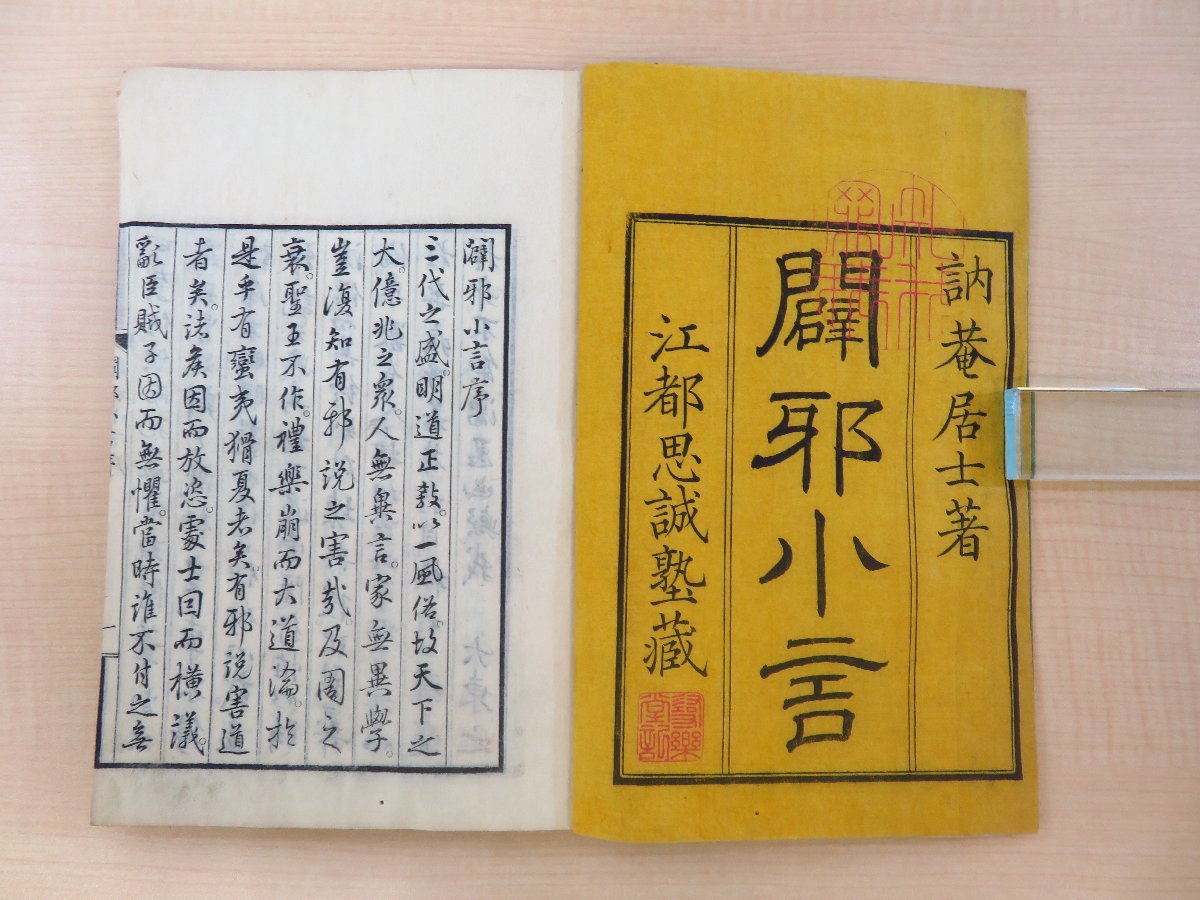 訥菴居士著
闢邪小言
江都思誠塾藏
闢邪小言序
三代之盛。明道正敎。以一風俗。故天下之
大。億兆之衆。人無異言。家無異學。
豈復知有邪說之害哉。及周之
衰。聖王不作。禮樂崩而大道淪。於
是乎有蠻夷猾夏者矣。有邪說害道
者矣。諸矦因而放恣。處士因而橫議。
亂臣賊子因而無懼。當時誰不付之無